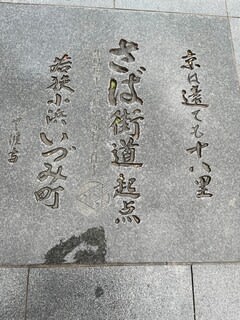 京は遠ても十八里
さば街道起点
若狭小浜いづみ町